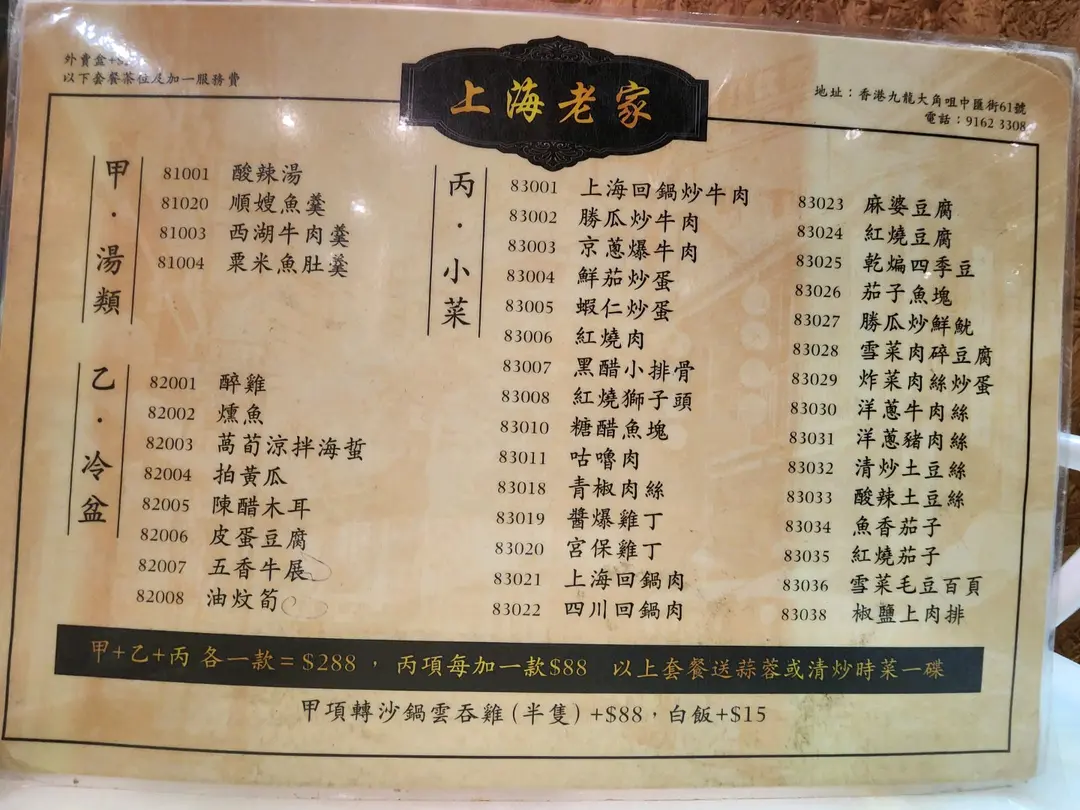 外賣盒+$
以下套餐茶位及加一服務費
上海老家
地址：香港九龍大角咀中匯街61號
電話：9162 3308
甲·湯類
81001 酸辣湯
81020 順嫂魚羹
81003 西湖牛肉羹
81004 粟米魚肚羹
乙·冷盆
82001 醉雞
82002 燻魚
82003 萵荀涼拌海蜇
82004 拍黃瓜
82005 陳醋木耳
82006 皮蛋豆腐
82007 五香牛展
82008 油炆荀
丙·小菜
83001 上海回鍋炒牛肉
83002 勝瓜炒牛肉
83003 京蔥爆牛肉
83004 鮮茄炒蛋
83005 蝦仁炒蛋
83006 紅燒肉
83007 黑醋小排骨
83008 紅燒獅子頭
83010 糖醋魚塊
83011 咕嚕肉
83018 青椒肉絲
83019 醬爆雞丁
83020 宮保雞丁
83021 上海回鍋肉
83022 四川回鍋肉
83023 麻婆豆腐
83024 紅燒豆腐
83025 乾煸四季豆
83026 茄子魚塊
83027 勝瓜炒鮮魷
83028 雪菜肉碎豆腐
83029 炸菜肉絲炒蛋
83030 洋蔥牛肉絲
83031 洋蔥豬肉絲
83032 清炒土豆絲
83033 酸辣土豆絲
83034 魚香茄子
83035 紅燒茄子
83036 雪菜毛豆百頁
83038 椒鹽上肉排
甲+乙+丙 各一款=$288，丙項每加一款$88 以上套餐送蒜蓉或清炒時菜一碟
甲項轉沙鍋雲吞雞(半隻)+$88，白飯+$15